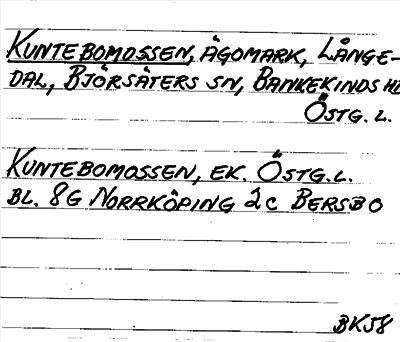 KUNTEBOMOSSEN, ÄGOMARK, LÅNGE-
DAL, BJÖRSÄTERS SN, BANKEKINDS HD
ÖSTG. L.
KUNTEBOMOSSEN, EK. ÖSTG. L.
BL. 8G NORRKÖPING 2C BERSBO
BK58